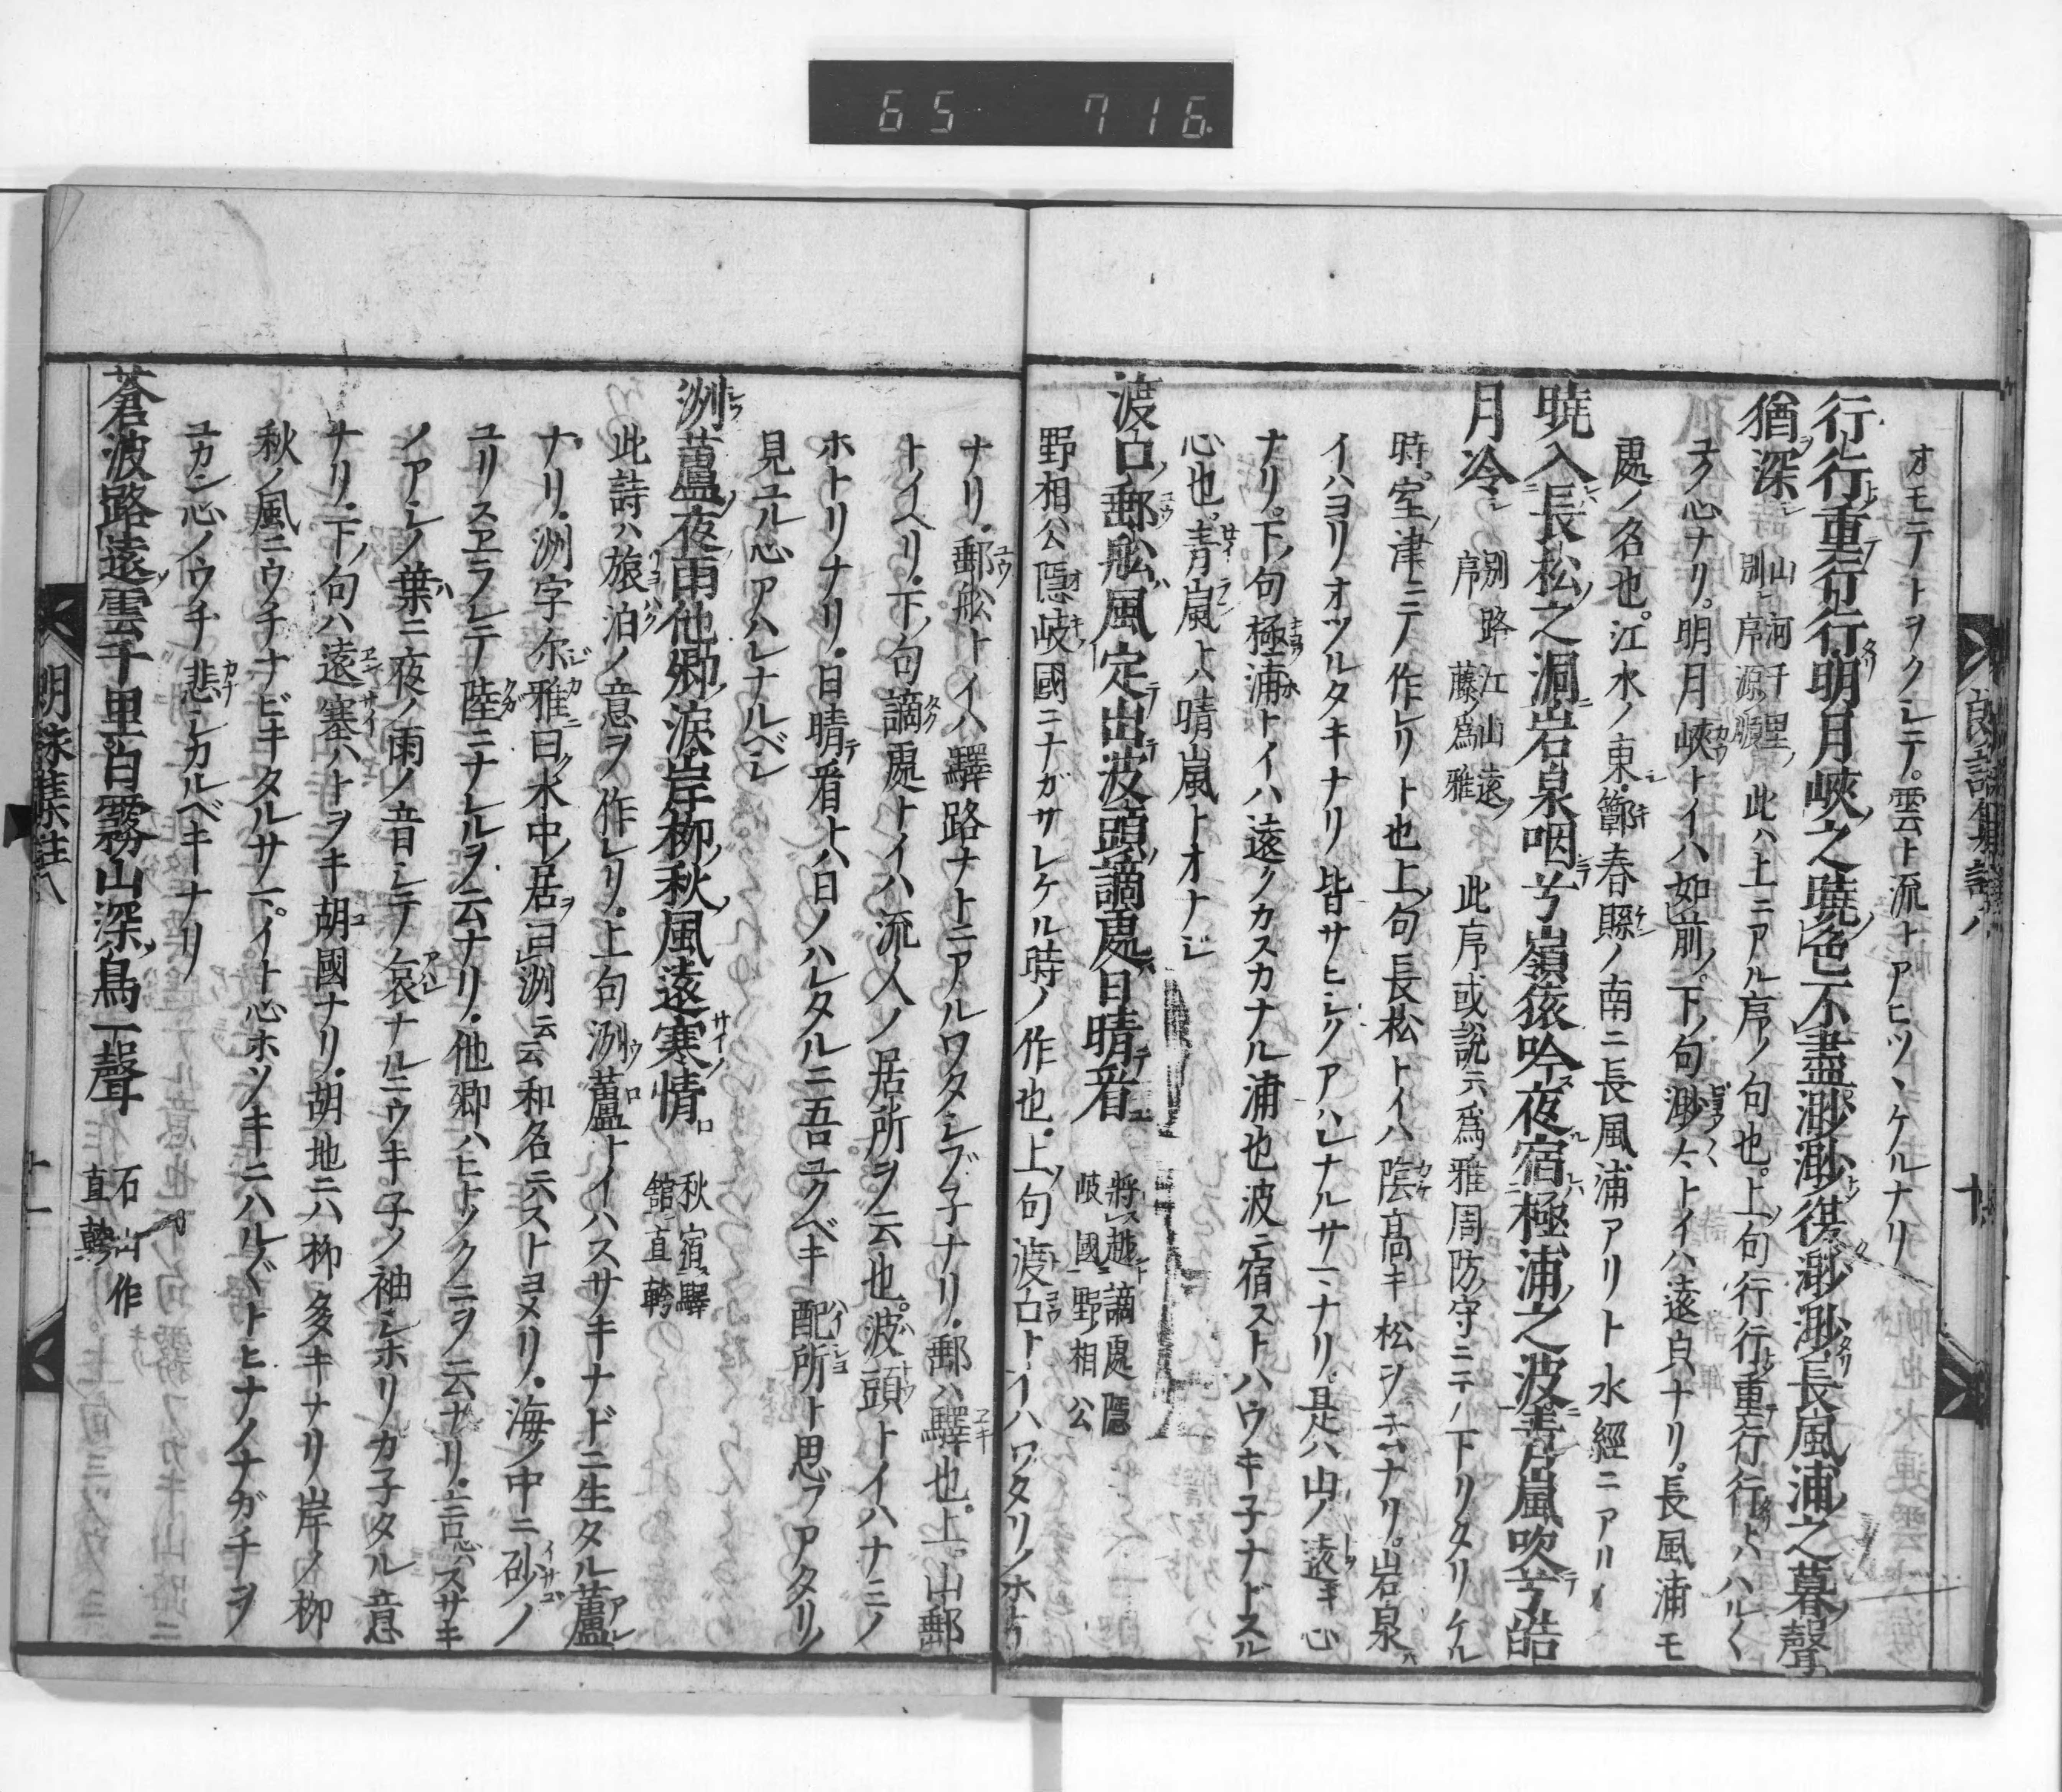 65 716
オモテトヲクシテ。雲ト流トアヒツヽケルナリ
行行重行行明月峽之曉色不盡渺渺復渺渺長風浦之暮聲
猶深 山河千里別序 源順 此ハ上ニアル序ノ句也。上句行行重行行トハハルく
ユク心ナリ。明月峽トイハ如前。下ノ句渺々トイハ遠㒵ナリ。長風浦モ
處ノ名也。江水ノ東。鄿春縣ノ南ニ長風浦アリト水經ニアリ
曉入長松之洞岩泉咽兮嶺猿吟夜宿極浦之波靑嵐吹兮皓
月冷 別路江山遠序 藤爲雅 此序或說云爲雅周防守ニテノ下リタリケル
時。室津ニテノ作レリト也上句長松トイハ陰高キ松ヲキナリ。岩泉ハ
イハヨリオツルタキナリ皆サヒシクアハレナルサマナリ。是ハ山ノ遠キ心
ナリ。下ノ句極浦トイハ遠クカスカナル浦也波ニ宿ストハウキ子ナドスル
心也。靑嵐トハ晴嵐トオナジ
渡口郵舩風定出波頭謫處日晴看 將越謫處隱岐國 野相公
野相公隱岐國ニナガサレケル時ノ作也。上句渡口トイハワタリノホトリ
ナリ。郵舩トイハ驛路ナトニアルワタシブ子ナリ。郵ハ驛也。上。山郵
トイヘリ。下ノ句謫處トイハ流人ノ居所ヲノ云也。波頭トイハナミノ
ホトリナリ。日晴看トハ日ノハレタルニ吾ユクベキ配所ト思フアタリノ
見ユル心アハレナルベシ
洲蘆夜雨他鄕淚岸柳秋風遠塞情 秋宿驛舘 直幹
此詩ハ旅泊ノ意ヲノ作レリ。上句洲蘆トイハスサキナドニ生タル蘆
ナリ。洲字尔雅曰水中ノ居曰洲云云和名ニスストヨメリ。海ノ中ニ砂ノ
ユリスヱラレテ陸ニナレルヲ云ナリ。他鄕ハヒトノクニヲノ云ナリ。言心ハスサキ
ノアシノ葉ニ夜ノ雨ノ音シテノ哀ナルニウキ子ノ袖シホリカ子タル意
ナリ。下ノ句ハ遠塞ハトヲキ胡國ナリ。胡地ニハ柳多キナリ岸ノ柳
秋ノ風ニウチナビキタルサマ。イト心ホソキニハルぐトヒナノナガチヲ
ユカン心ノウチ悲シカルベキナリ
蒼波路遠雲千里白霧山深鳥一聲 石山作 直幹